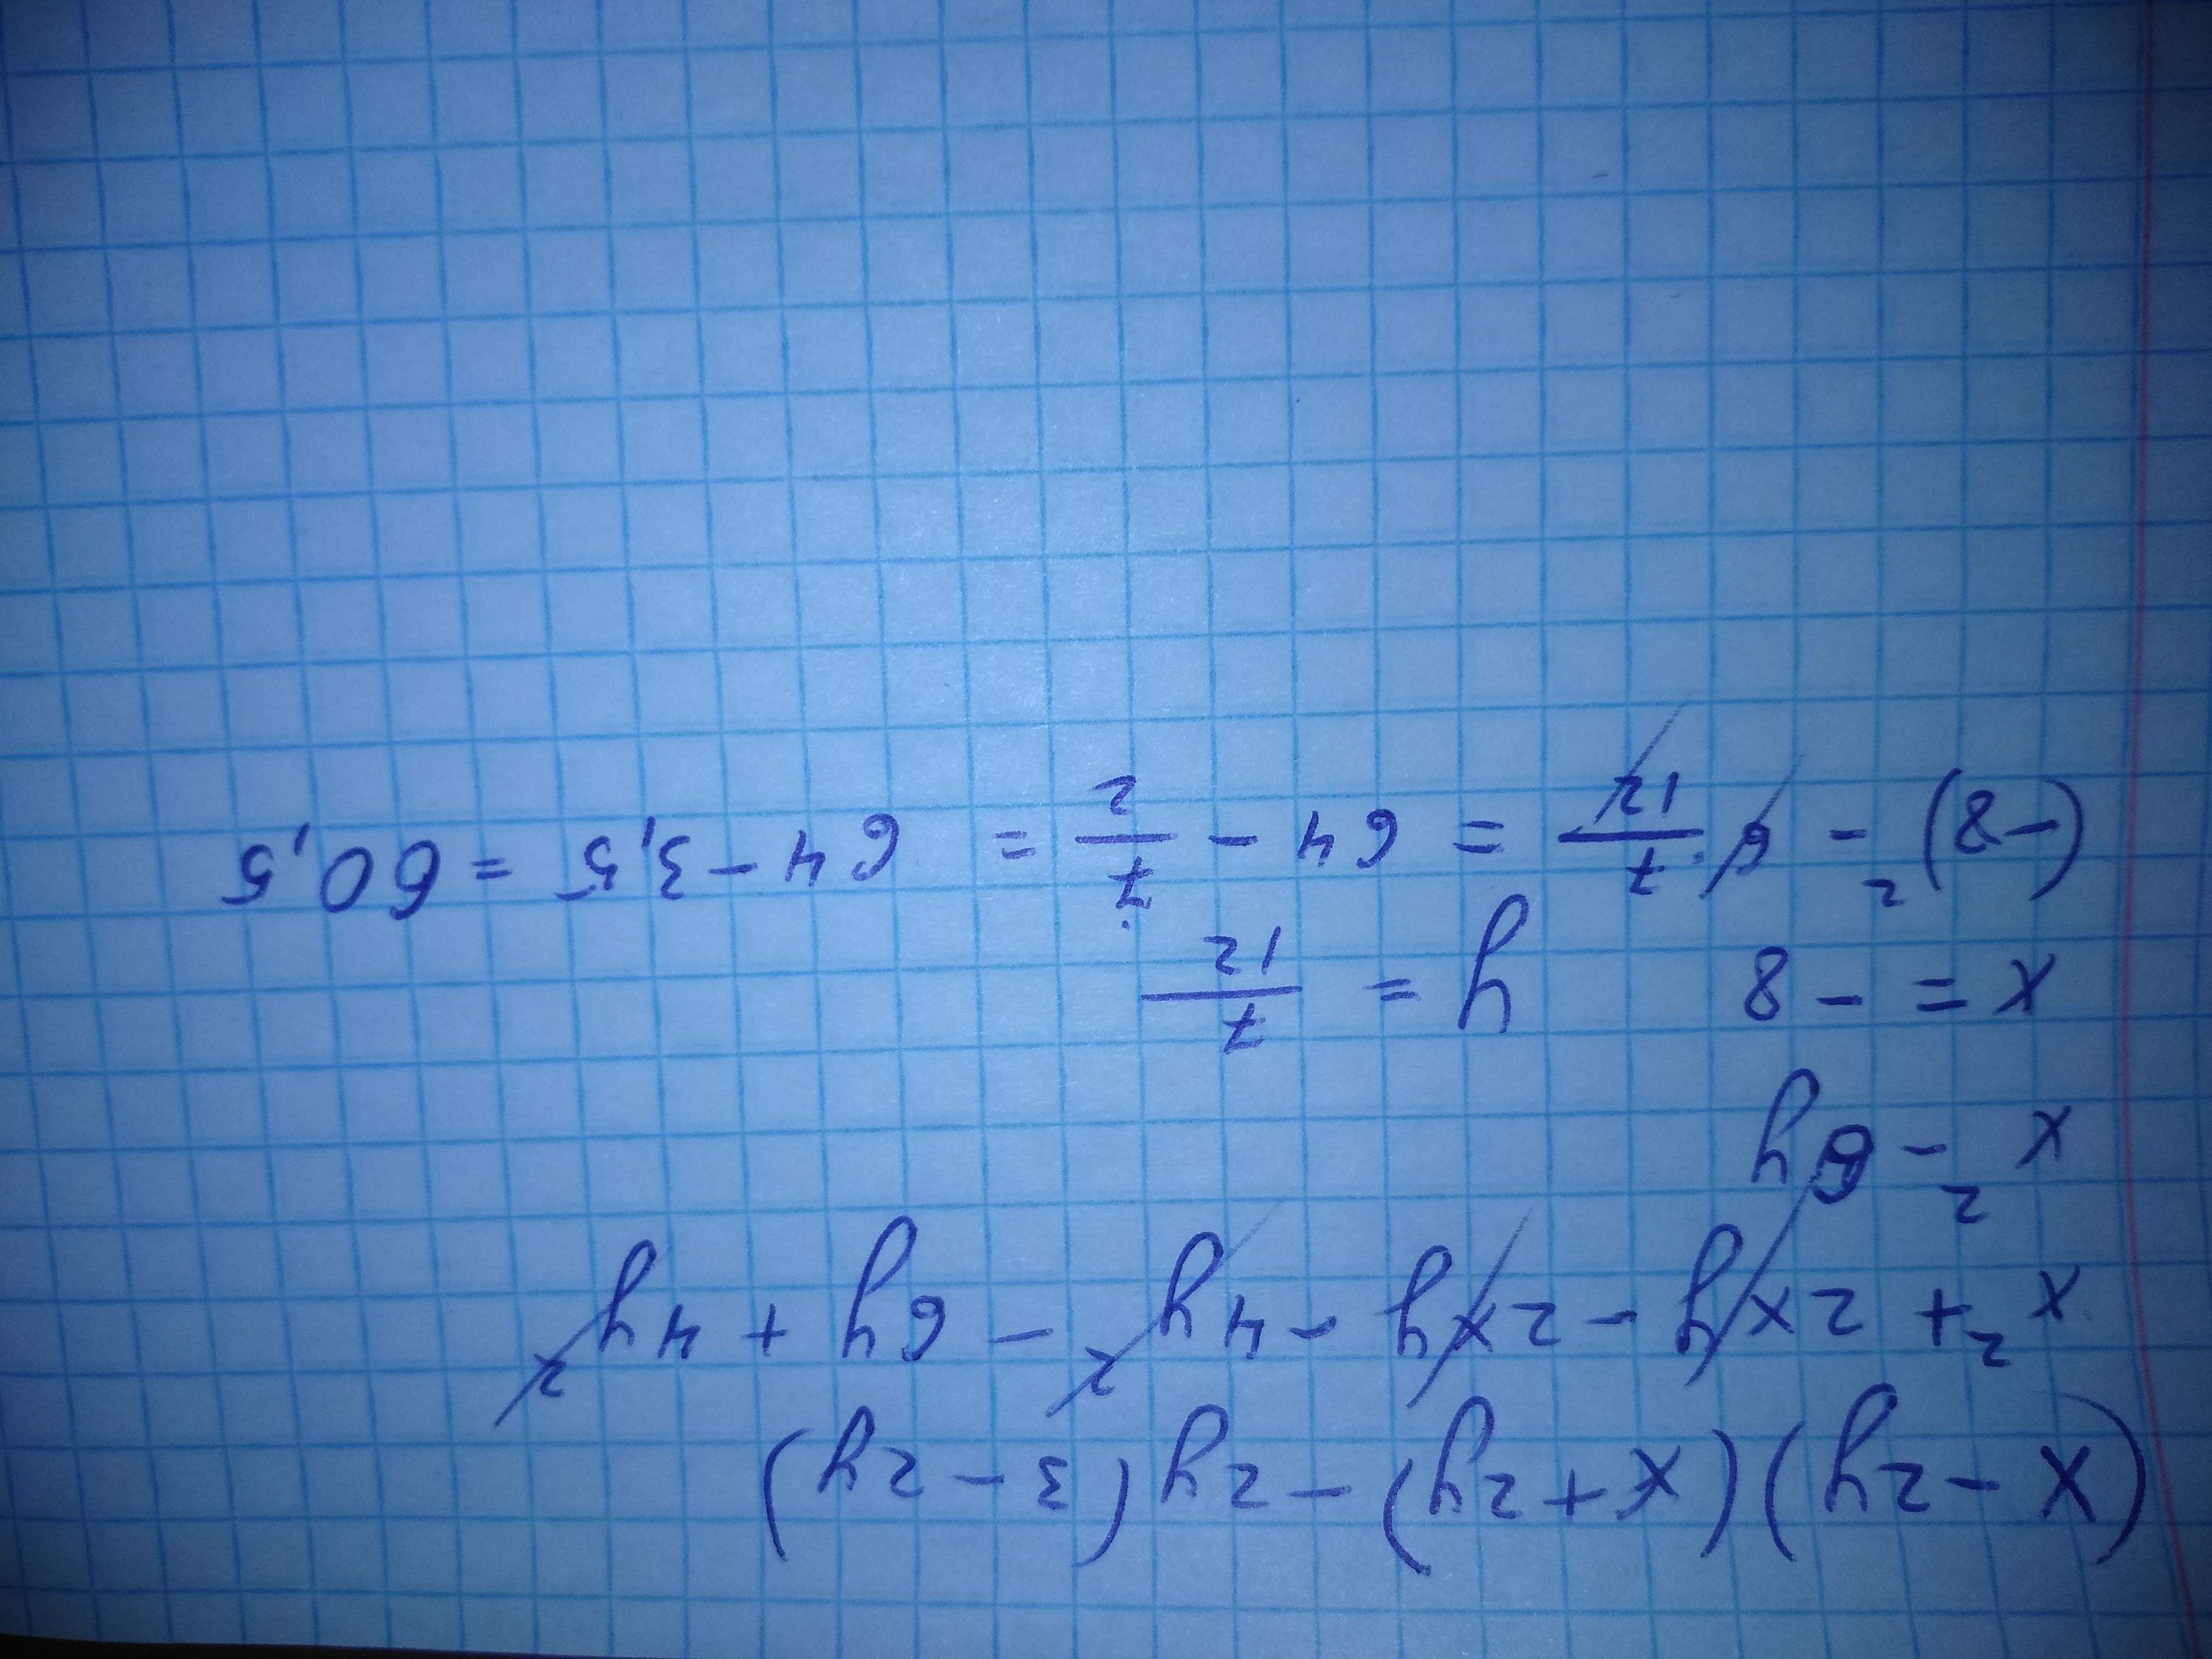 (x - 2y)(x + 2y) - 2y(3 - 2y)
x² + 2xy - 2xy - 4y² - 6y + 4y²
x² - 6y
x = - 8 y = 7/12
(- 8)² - 6 · 7/12 = 64 - 7/2 = 64 - 3,5 = 60,5